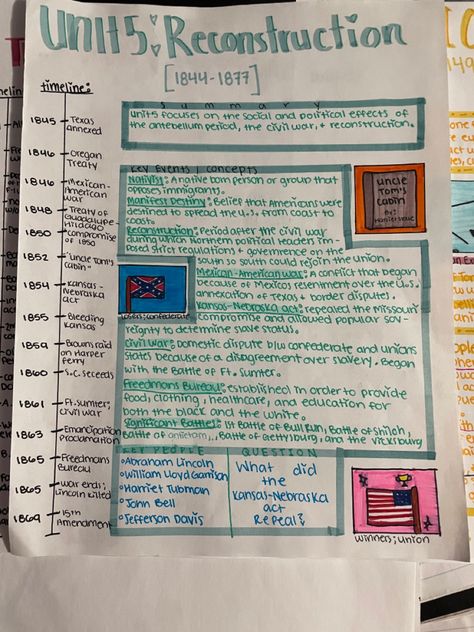 Unit 5: Reconstruction
[1844-1877]
timeline:
1845 Texas annexed
1846 Oregan Treaty
1846 Mexican-American war
1848 Treaty of Guadalupe-Hidalgo
1850 compromise of 1850
1852 "uncle Tom's cabin"
1854 Kansas-Nebraska act
1855 Bleeding Kansas
1859 raid on Harper ferry
1860 S.C. seceds
1861 Ft. Sumter; civil war
1863 Emancipation Proclamation
1865 Freedmans Bureau
1865 war ends; Lincoln killed
1869 15th Amendment
summary
unit 5 focuses on the social and political effects of
the antebellum period, the civil war, + reconstruction.
Key Events | Concepts
Nativist: A native born person or group that
opposes immigrants.
Manifest Destiny: Belief that Americans were
destined to spread the U.S. from coast to
coast.
Reconstruction: Period after the civil war
during which Northern political leaders im-
posed strict regulations + governence on the
South so South could rejoin the union.
Mexican-American war: A conflict that began
because of Mexicos resentment over the U.S.
annexation of Texas + border disputes.
Kansas-Nebraska act: repealed the missouri
compromise and allowed popular sov-
reignty to determine slave status.
Civil war: domestic dispute b/w confederate and unions
states because of a disagreement over slavery. Began
with the Battle of Ft. Sumter.
Freedmans Bureau: established in order to provide
food, clothing, healthcare, and education for
both the black and the white.
Significant Battles: 1st Battle of Bull Run, Battle of Shiloh,
Battle of antietam, Battle of Gettysburg, and the Vicksburg
uncle
Tom's
cabin
losers; confederate
KEY PEOPLE
Abraham Lincoln
William Lloyd Garrison
Harriet Tubman
John Bell
Jefferson Davis
QUESTION
What did
the
Kansas-Nebraska
act
Repeal?
winners; union